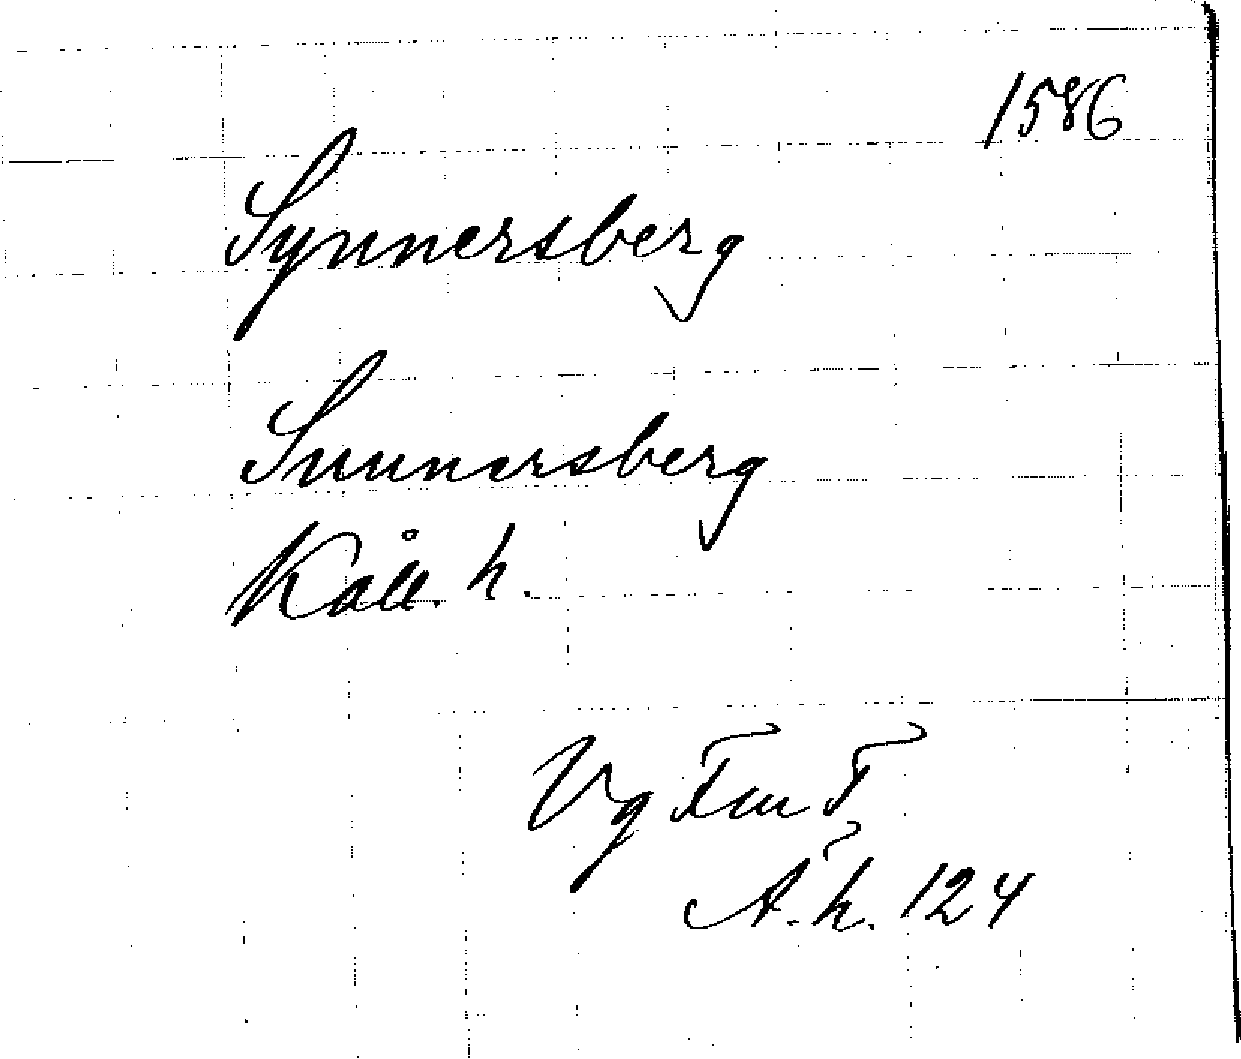 1586
Synnersberg
Sunnersberg
Kåll. h.
Vg FmT
A. h. 124